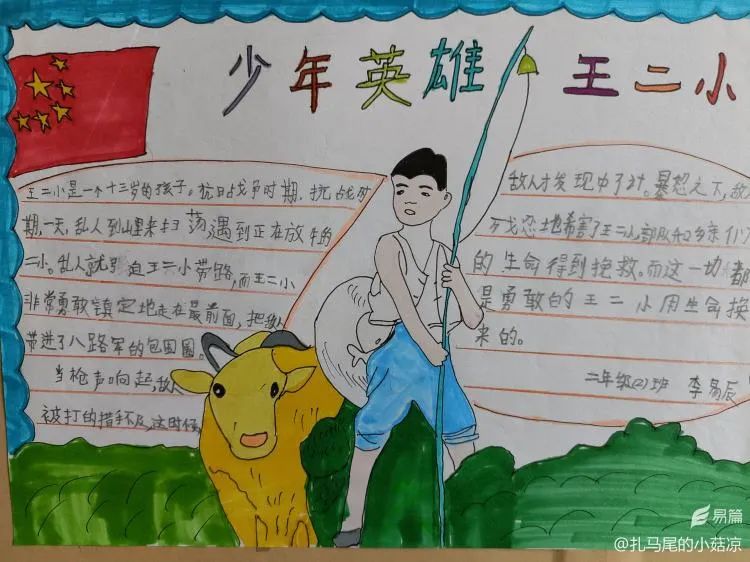 少年英雄 王二小
王二小是一个十三岁的孩子。抗日战争时期,抗战时
期,一天,乱人到山里来扫荡遇到正在放牛的
二小。乱人就引迫王二小带路,而王二小
非常勇敢镇定地走在最前面,把敌
带进了八路军的包围圈。
当枪声响起,敌
被打的措手不及,这时候
敌人才发现中了计。暴怒之下,敌
残忍地杀害了王二小,部队和乡亲们
的生命得到挽救。而这一切都
是勇敢的王二小用生命换
来的。
二年级(2)班 李易辰
易篇
@扎马尾的小菇凉